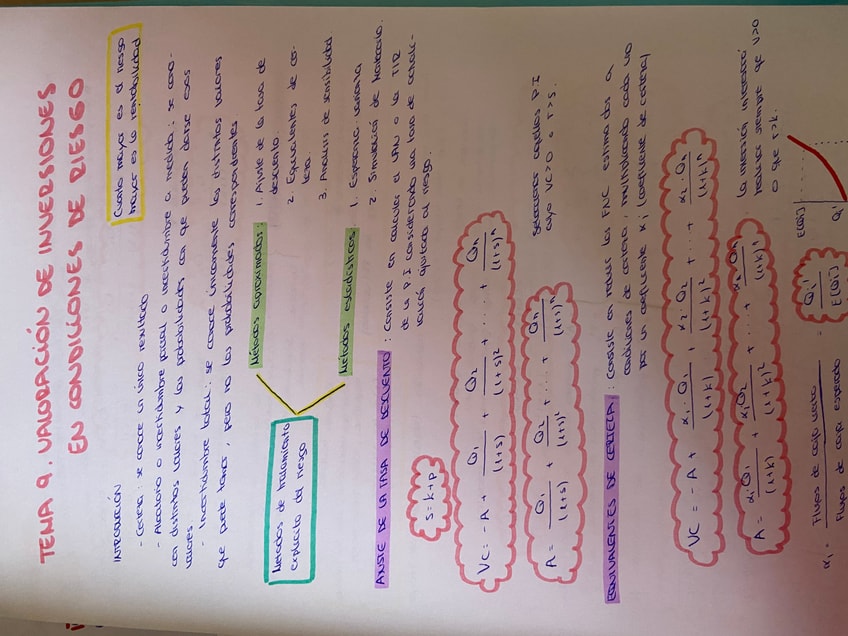 TEMA 9. VALORACIÓN DE INVERSIONES
EN CONDICIONES DE RIESGO
INTRODUCCIÓN
Cuanto mayor es el riesgo
mayor es la rentabilidad
- Certeza: se conoce un único resultado
- Aleatorio o incertidumbre parcial o medible: se cono-
cen distintos valores y las probabilidades con que pueden darse esos
valores
- Incertidumbre total: se conoce únicamente los distintos valores
que puede tomar, pero no las probabilidades correspondientes
Métodos de tratamiento
explícito del riesgo
Métodos aproximados:
1. Ajuste de la tasa de
descuento.
2. Equivalentes de cer-
teza.
3. Análisis de sensibilidad
Métodos estadísticos
1. Esperanza-varianza
2. Simulación de Montecarlo.
AJUSTE DE LA TASA DE DESCUENTO: Consiste en calcular el VAN o la TIR
de la P.I considerando una tasa de actuali-
zación ajustada al riesgo.
s = k + p
VC = -A + Q1/(1+s) + Q2/(1+s)^2 + ... + Qn/(1+s)^n
A = Q1/(1+s) + Q2/(1+s)^2 + ... + Qn/(1+s)^n
Seleccionar aquellos P.I
cuyo VC>0 o r>s.
EQUIVALENTES DE CERTEZA: Consiste en reducir los FNC estimados a
condiciones de certeza, multiplicando cada uno
por un coeficiente αj (coeficiente de certeza)
VC = -A + α1·Q1/(1+k) + α2·Q2/(1+k)^2 + ... + α2·Qn/(1+k)^n
A = α1Q1/(1+k) + α1Q2/(1+k)^2 + ... + α2·Qn/(1+k)^n
La inversión interesará
realizarse siempre que V>0
o que r>k.
α1 = Flujos de caja ciertos / Flujos de caja esperados = Q1'/E(Q1)
E(Qj)
Q1